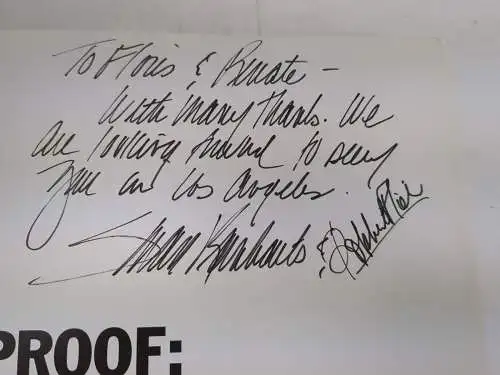 To Floris & Renate –
With many thanks. We
are looking forward to seeing
you in Los Angeles.
Susan &
PROOF: